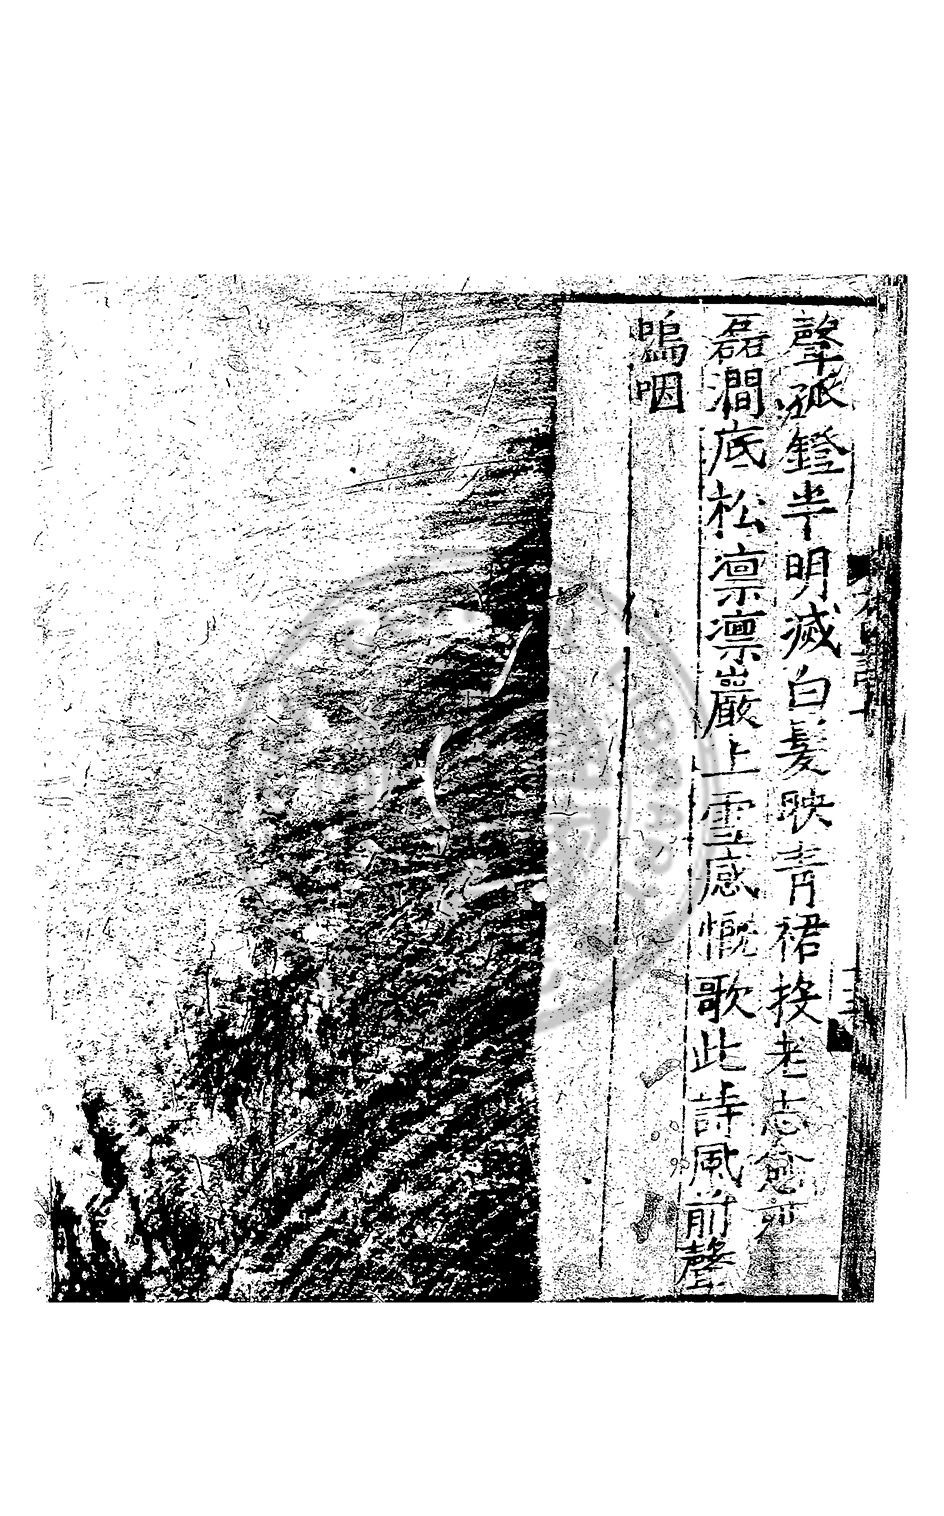 聲孤鐙半明滅白髮映青裙挨老志愈
磊澗底松凛凛巖上雪感慨歌此詩風前聲
嗚咽